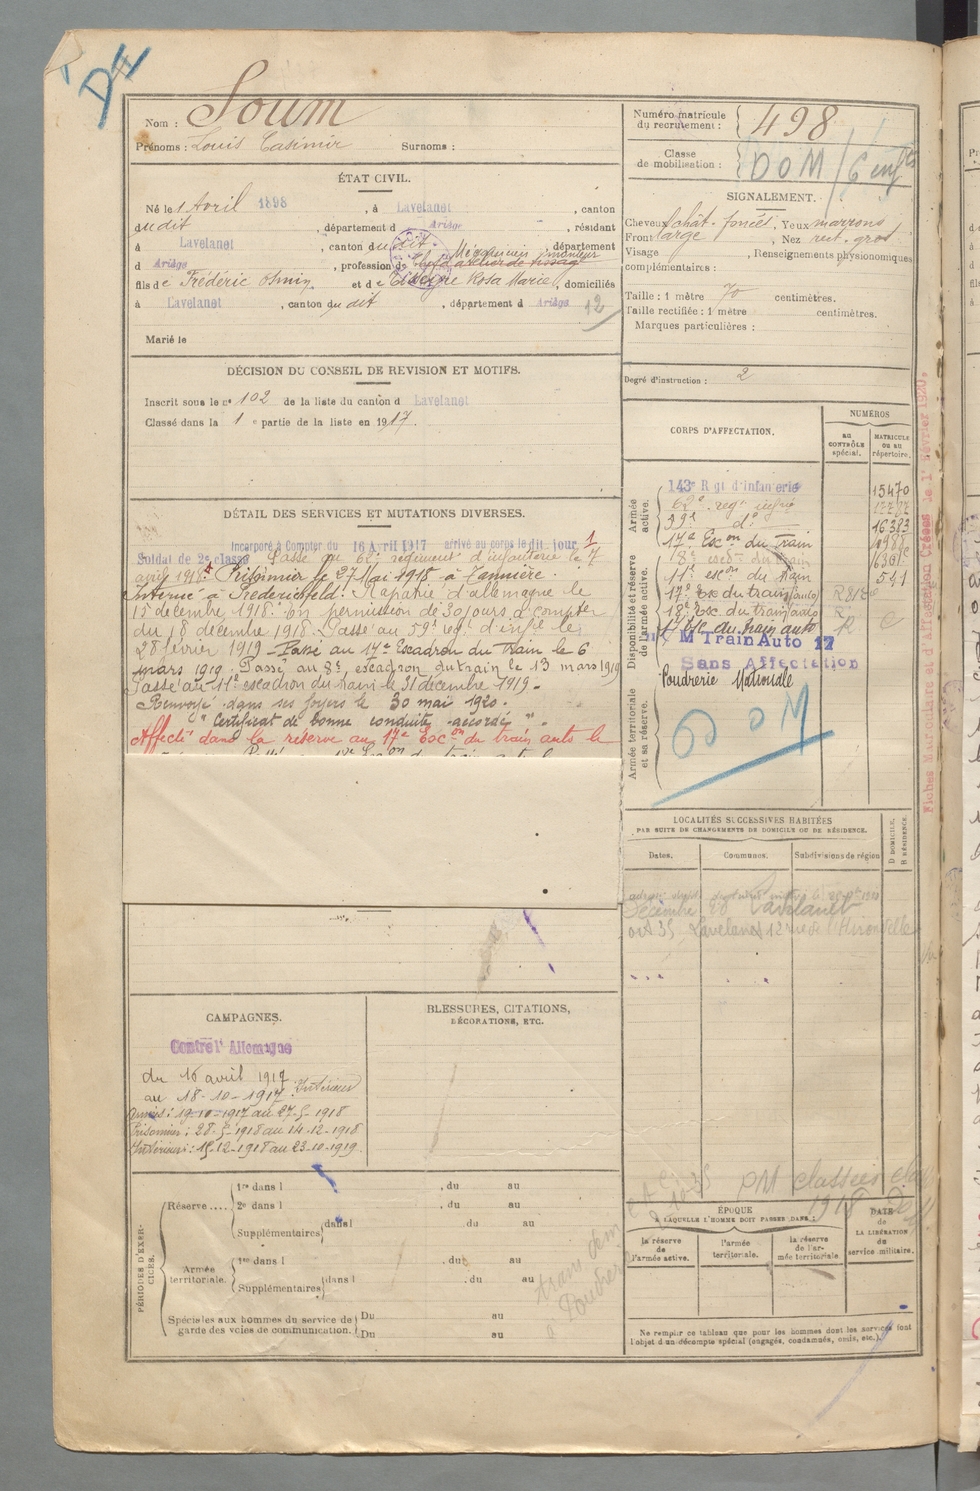 D4
Nom : Soum
Prénoms : Louis Casimir Surnoms :
Numéro matricule du recrutement : 498
Classe de mobilisation : DOM / 6 enfts
ÉTAT CIVIL.
Né le 1 Avril 1898, à Lavelanet, canton
dudit, département d Ariège, résidant
à Lavelanet, canton dudit, département
d Ariège, profession de Mécanicien monteur
fils de Frédéric Osmin et de Rosa Marie, domiciliés
à Lavelanet, canton du dit, département d Ariège 12
Marié le
SIGNALEMENT.
Cheveux chât. foncés, Yeux marrons
Front large, Nez rect. gros
Visage , Renseignements physionomiques
complémentaires :
Taille : 1 mètre 70 centimètres.
Taille rectifiée : 1 mètre centimètres.
Marques particulières :
Degré d'instruction : 2
DÉCISION DU CONSEIL DE REVISION ET MOTIFS.
Inscrit sous le no 102 de la liste du canton d Lavelanet
Classé dans la 1e partie de la liste en 1917.
DÉTAIL DES SERVICES ET MUTATIONS DIVERSES.
Incorporé à Compter du 16 Avril 1917 arrivé au corps le dit jour 1
Soldat de 2e classe Passé au régiment d'infanterie le 7
avril 1918. Prisonnier le 27 Mai 1918 à
Interné à Frederichsfeld. Rapatrié d'allemagne le
15 decembre 1918. En permission de 30 jours à compter
du 18 décembre 1918. Passé au 59e regt d'infie le
28 février 1919 - Passé au 17e Escadron du Train le 6
mars 1919. Passé au 8e escadron du train le 13 mars 1919
Passé au 11e escadron du train le 31 decembre 1919.
Renvoyé dans ses foyers le 30 mai 1920.
"Certificat de bonne conduite accordé".
Affecté dans la réserve au 17e Escon du train auto le
CORPS D'AFFECTATION.
NUMÉROS
AU CONTRÔLE spécial.
MATRICULE OU AU répertoire.
Armée active.
143e Rgt d'Infanterie 15470
62e regt infie
59e do 16383
17e Escon du Train
Disponibilité et réserve de l'armée active.
8e esc. du train
11e escon du train 541
17e Esc du train (auto)
18e Esc. du train (auto)
17e Esc du train auto
M Train Auto 17
Sans Affectation
Poudrerie Nationale
Armée territoriale et sa réserve.
DOM
Fiches Matriculaire et d'Affectation Créées le 1er février 1920.
LOCALITÉS SUCCESSIVES HABITÉES
PAR SUITE DE CHANGEMENTS DE DOMICILE OU DE RÉSIDENCE.
Dates. Communes. Subdivisions de région
D DOMICILE.
R RÉSIDENCE.
Lavelanet
oct 35 Lavelanet 12 rue de l'Hirondelle
CAMPAGNES.
Contre l'Allemagne
du 16 avril 1917
au 18-10-1917 Intérieur
Armées : 19-10-1917 au 27-5-1918
Prisonnier : 28-5-1918 au 14-12-1918
Intérieur : 15-12-1918 au 23-10-1919
BLESSURES, CITATIONS,
DÉCORATIONS, ETC.
PÉRIODES D'EXERCICES.
Réserve....
1re dans l , du au
2e dans l , du au
Supplémentaires dans l , du au
Armée territoriale.
1re dans l , du au
Supplémentaires dans l , du au
Spéciales aux hommes du service de garde des voies de communication.
Du au
Du au
PM classées
1918
ÉPOQUE
A LAQUELLE L'HOMME DOIT PASSER DANS :
la réserve de l'armée active.
l'armée territoriale.
la réserve de l'armée territoriale.
DATE de LA LIBÉRATION du service militaire.
Ne remplir ce tableau que pour les hommes dont les services font
l'objet d'un décompte spécial (engagés, condamnés, omis, etc.).